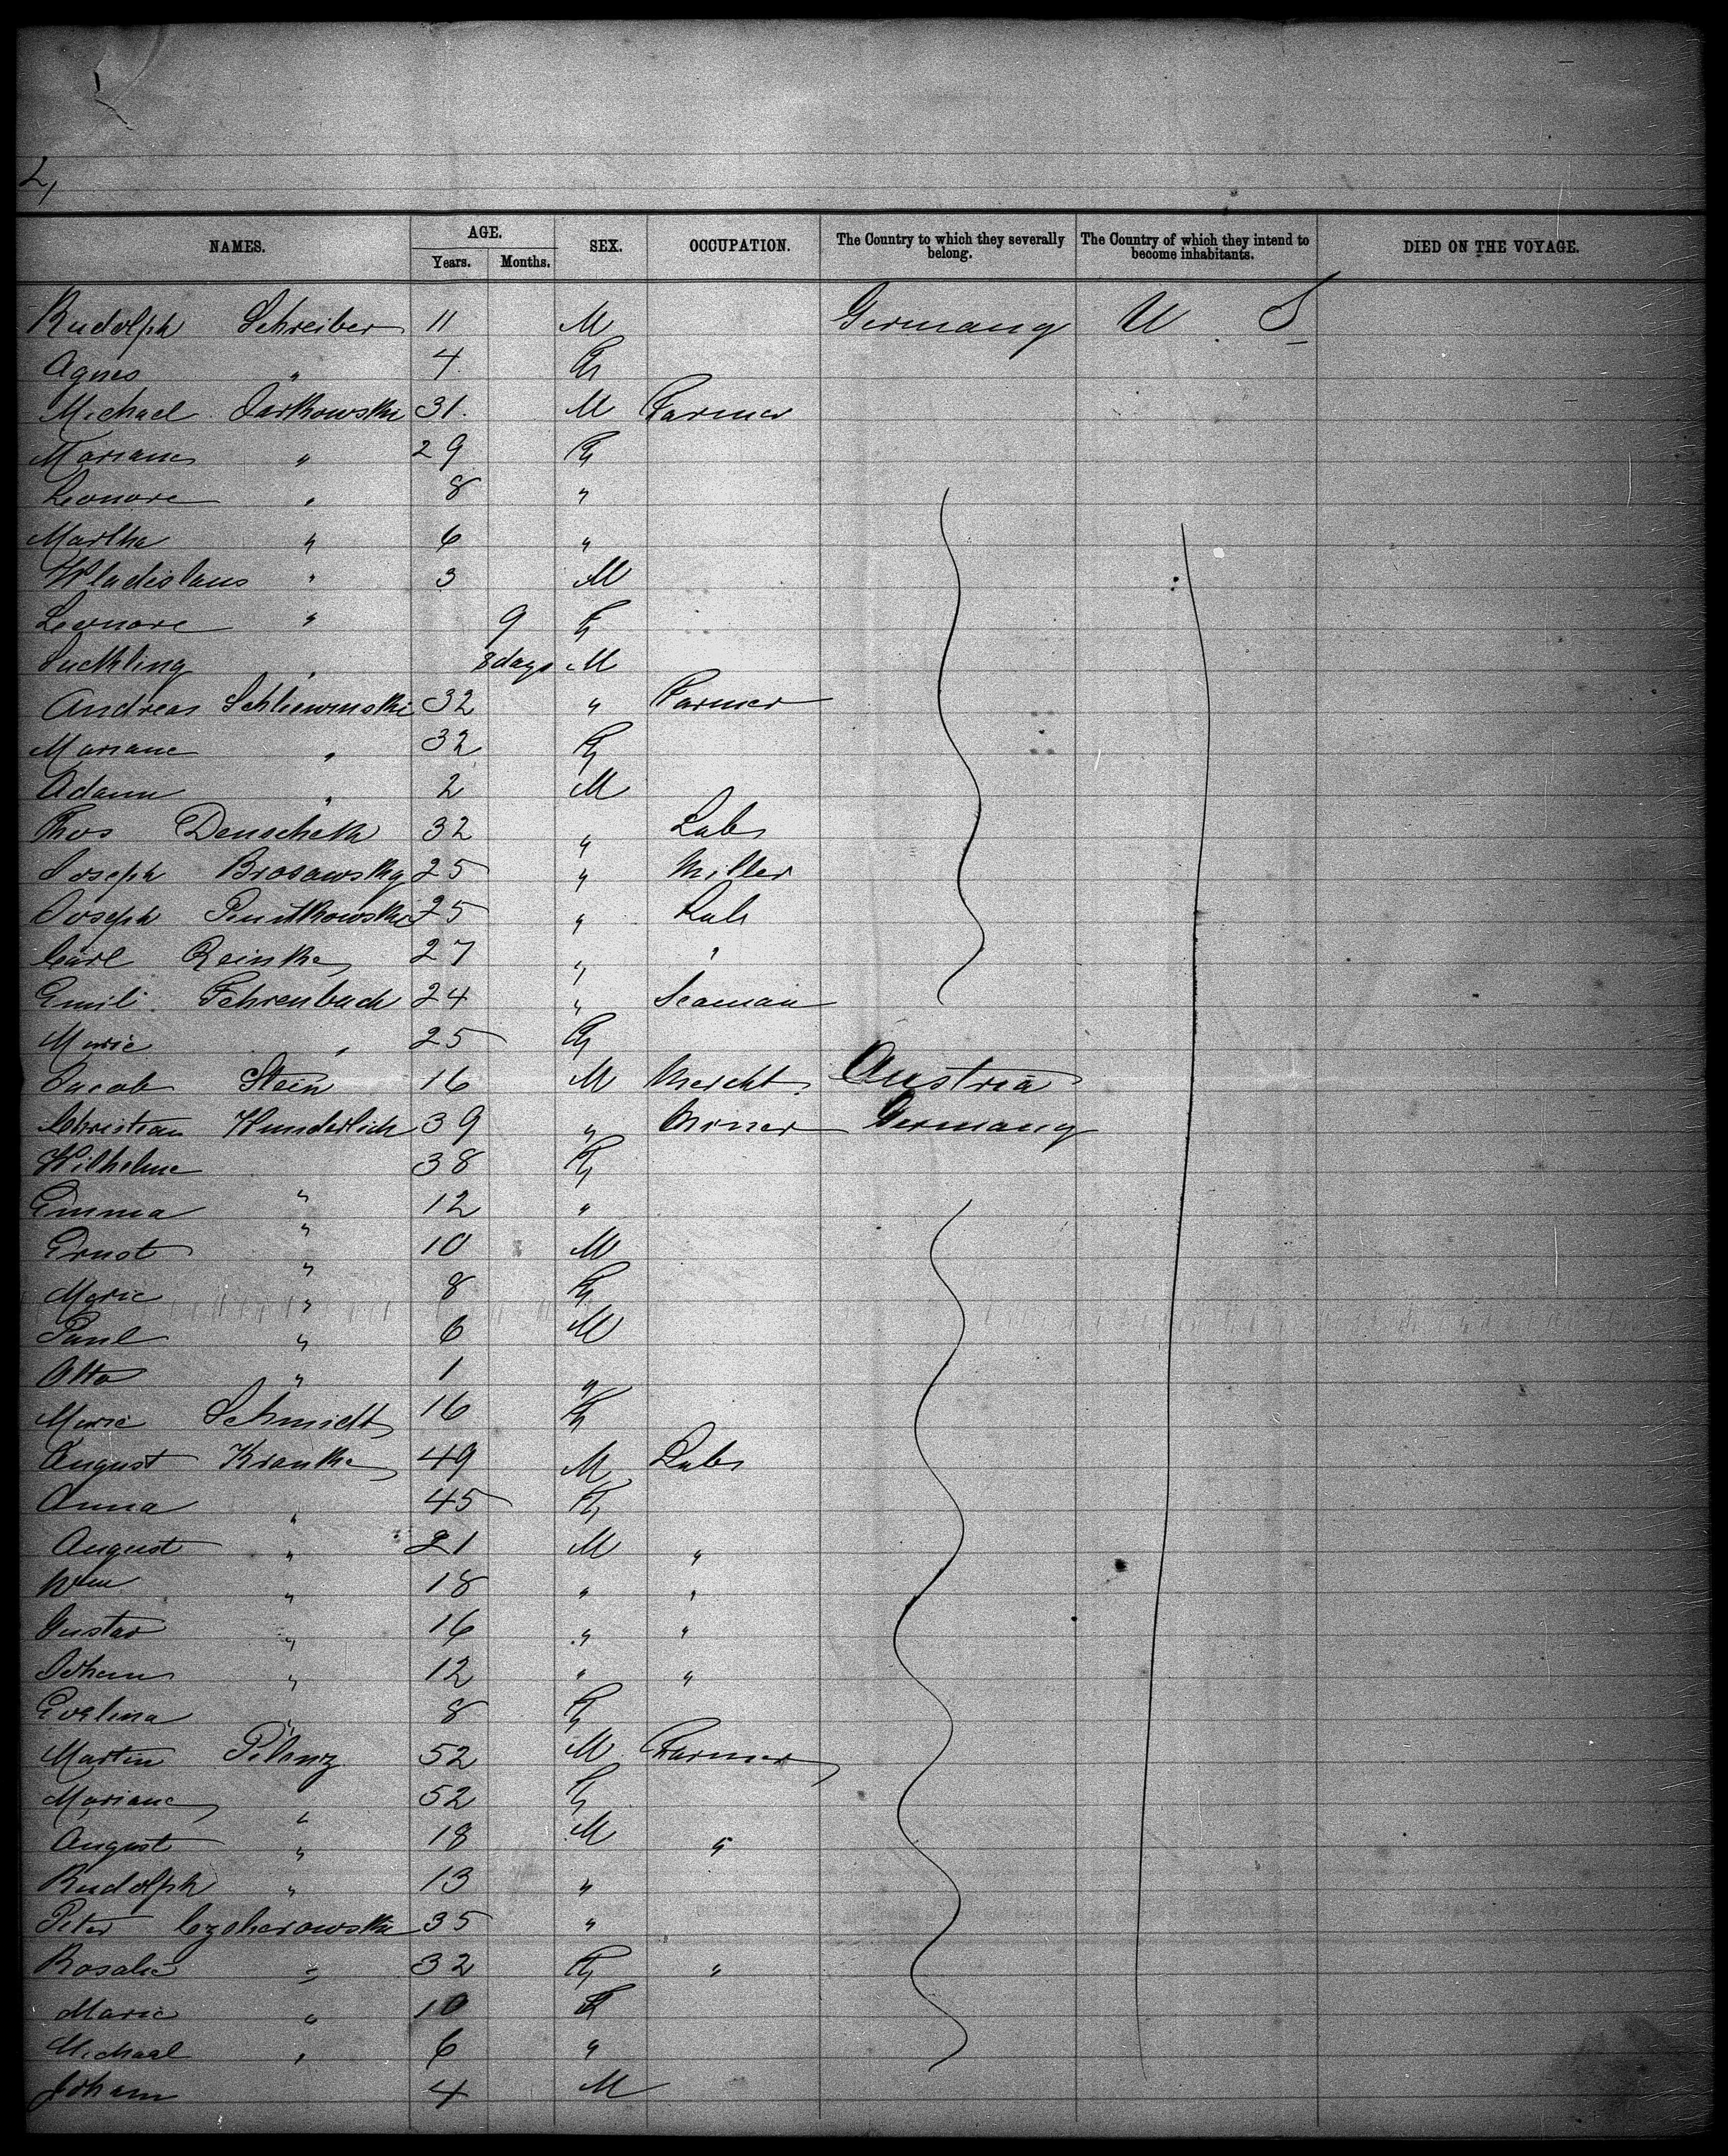 2,
NAMES. AGE. SEX. OCCUPATION. The Country to which they severally belong. The Country of which they intend to become inhabitants. DIED ON THE VOYAGE.
Years. Months.
Rudolph Schreiber 11 M Germany U S
Agnes " 4 F
Michael Jarkowski 31 M Farmer
Mariane " 29 F
Leonore " 8 "
Martha " 6 "
Wladislaus " 3 M
Leonore " 9 F
Suckling " 8 days M
Andreas Schliewinski 32 " Farmer
Mariane " 32 F
Adam " 2 M
Thos Denscheck 32 " Labr
Joseph Brosowsky 25 " Miller
Joseph 25 " Labr
Carl Reinke 27 " "
Emil Fehrenbach 24 " Seaman
Marie " 25 F
Jacob Stein 16 M Mercht. Austria
Christian Wunderlich 39 " Miner Germany
Wilhelme " 38 F
Emma " 12 "
Ernst " 10 M
Marie " 8 F
Paul " 6 M
Otto " 1 "
Marie Schmidt 16 F
August Krantke 49 M Labr
Anna " 45 F
August " 21 M "
Wm " 18 " "
Gustav " 16 " "
Johann " 12 " "
Evelina " 8 F
Martin Pilanz 52 M Farmer
Mariane " 52 F
August " 18 M "
Rudolph " 13 "
Peter Czecherowski 35 "
Rosalie " 32 F "
Marie " 10 F
Michael " 6 "
Johann 4 M